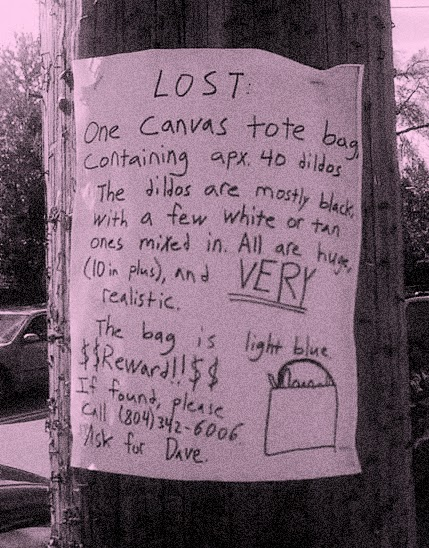 LOST:
One Canvas tote bag,
containing apx. 40 dildos
The dildos are mostly black,
with a few white or tan
ones mixed in. All are huge,
(10 in plus), and VERY
realistic.
The bag is light blue
$$Reward!!$$
If found, please
call (804) 342-6006
Ask for Dave.